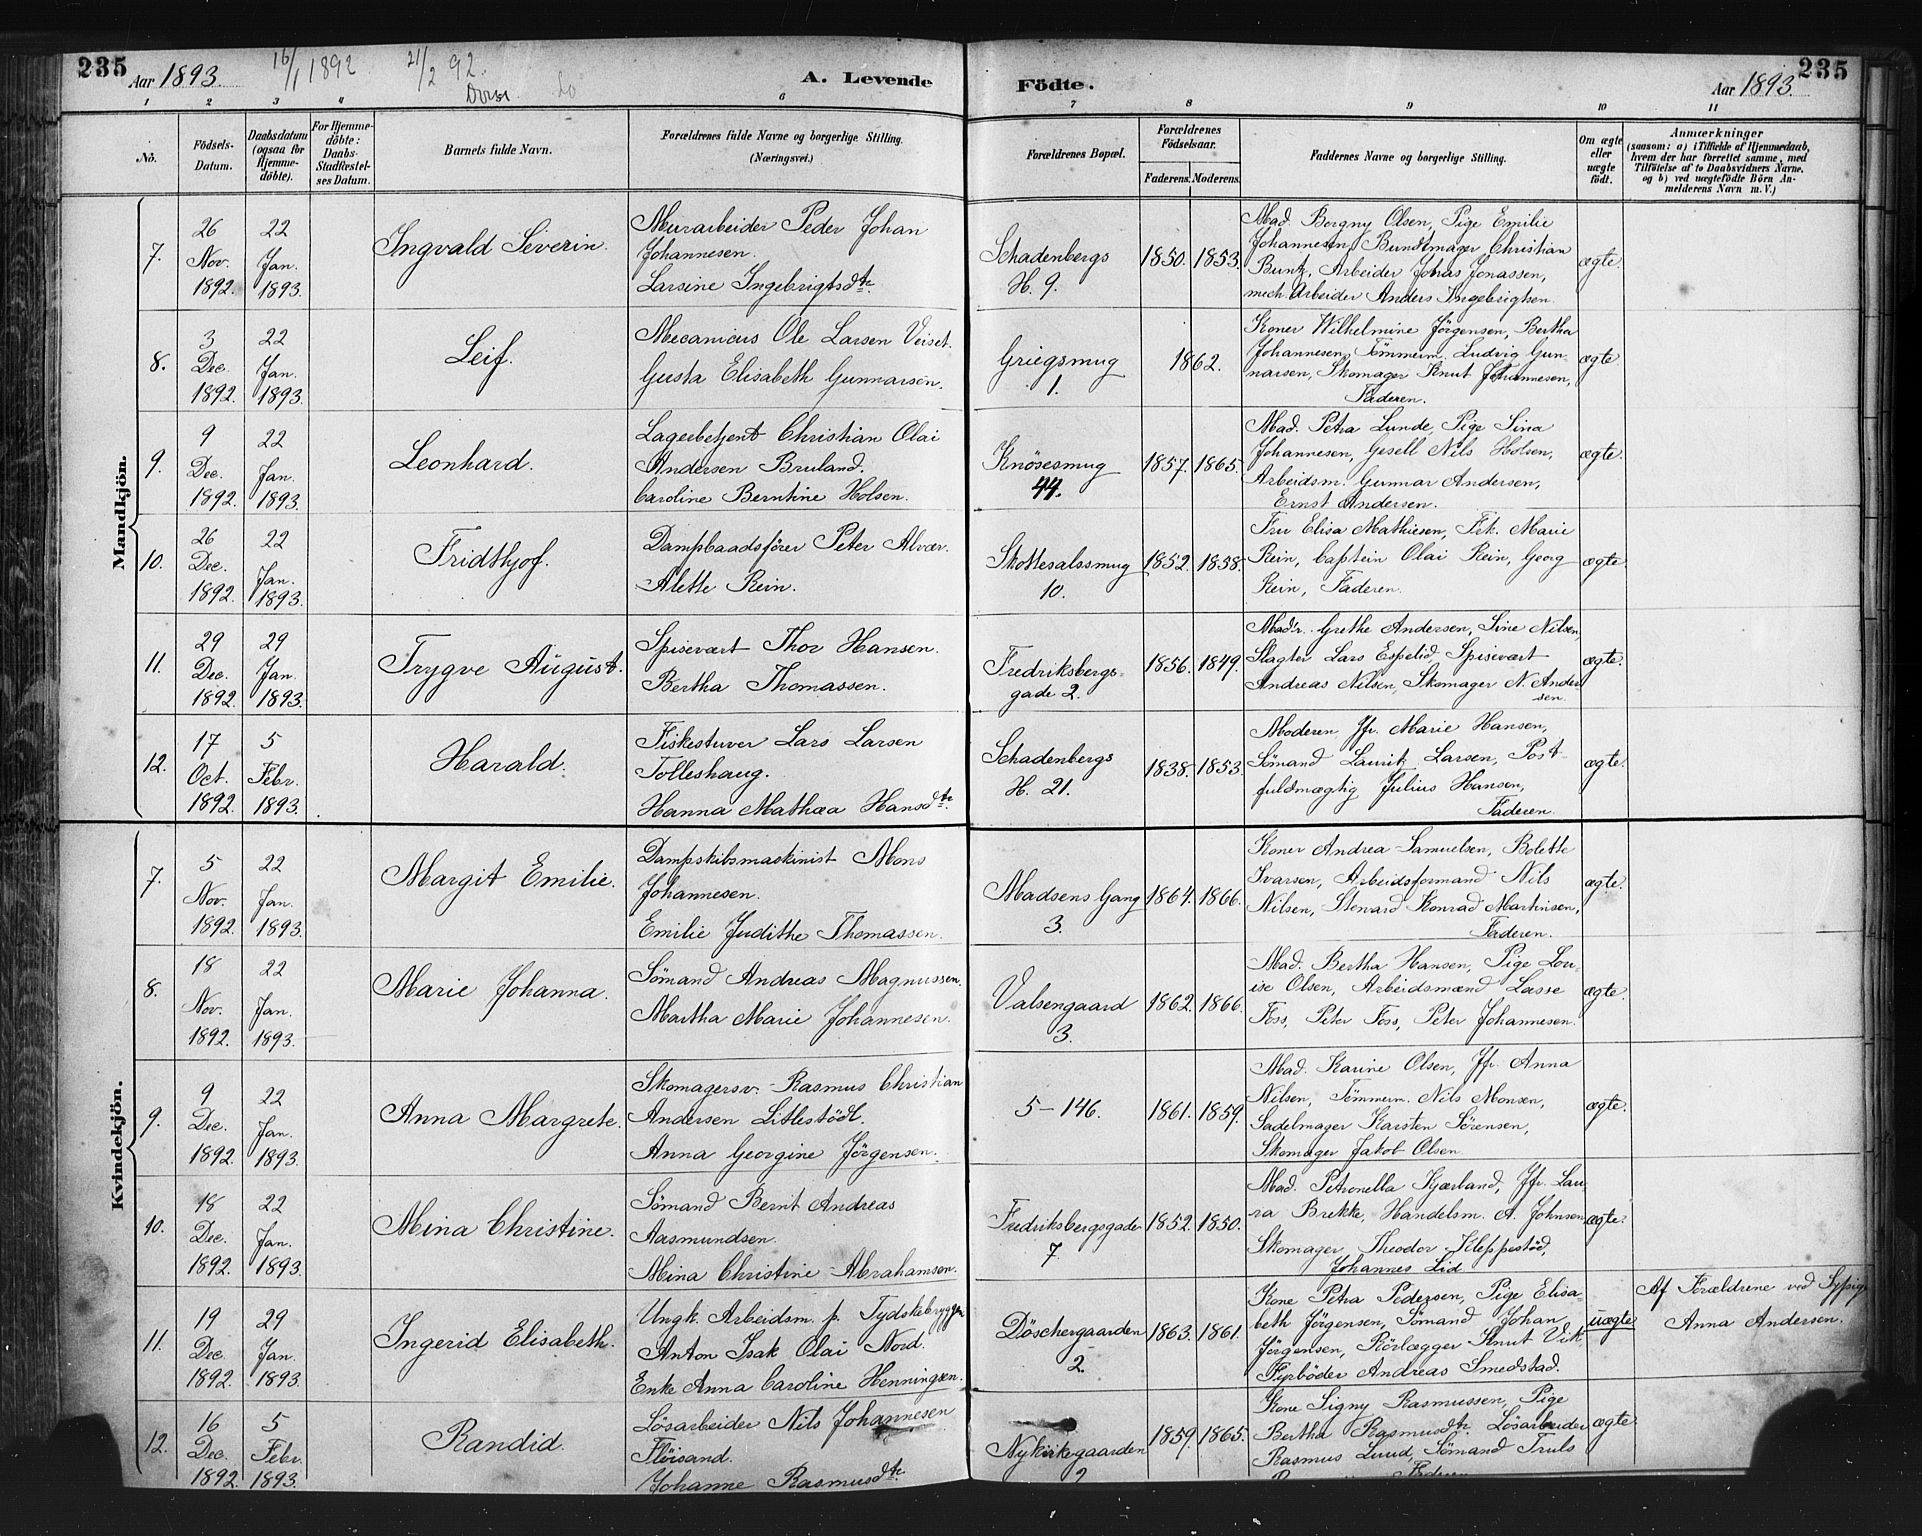 235
Aar 1893.
16/1 1892
21/2 92.
A. Levende
Födte.
Aar 1893.
235
1 2 3 4 6 7 8 9 10 11
No.
Födsels-
Datum.
Daabsdatum
(ogsaa for
Hjemme-
döbte).
For Hjemme-
döbte:
Daabs-
Stadfæstel-
ses Datum.
Barnets fulde Navn.
Forældrenes fulde Navne og borgerlige Stilling.
(Næringsvei.)
Forældrenes Bopæl.
Forældrenes
Födselsaar.
Faderens. Moderens.
Faddernes Navne og borgerlige Stilling.
Om ægte
eller
uægte
födt.
Anmærkninger
(saasom: a) i Tilfælde af Hjemmedaab,
hvem der har forrettet samme, med
Tilföielse af to Daabsvidners Navne,
og b) ved uægtefödte Börn An-
melderens Navn m. V.)
Mandkjön.
7.
26
Nov.
1892.
22
Jan.
1893.
Ingvald Severin.
Murarbeider Peder Johan
Johannesen.
Larsine Ingebrigtsdtr.
Schadenbergs
H. 9.
1850. 1853.
Mad. Borgny Olsen, Pige Emilie
Johannesen, Bundtmager Christian
Buntz, Arbeider Johas Jonassen,
mech. Arbeider Anders Ingebrigtsen.
ægte.
8.
3
Dec.
1892.
22
Jan.
1893.
Leif.
Mecanicus Ole Larsen Veiset.
Gusta Elisabeth Gunnarsen.
Griegsmug
1.
1862.
Koner Wilhelmine Jörgensen, Bertha
Johannesen, Tömmerm. Ludvig Gun-
narsen, Skomager Knut Johannesen,
Faderen.
ægte.
9.
9
Dec.
1892.
22
Jan.
1893.
Leonhard.
Lagerbetjent Christian Olai
Andersen Bruland.
Caroline Berntine Holsen.
Knösesmug
44.
1857. 1865.
Mad. Petra Lunde, Pige Sina
Johannesen, Gesell Nils Holsen,
Arbeidsm. Gunnar Andersen,
Ernst Andersen.
ægte.
10.
26
Dec.
1892.
22
Jan.
1893.
Fridthjof.
Dampbaadsförer Peter Alvær.
Alette Rein.
Skottesalssmug
10.
1852. 1858.
Fru Elisa Mathiesen, Frk. Marie
Rein, Captein Olai Rein, Georg
Rein, Faderen.
ægte.
11.
29
Dec.
1892.
29
Jan.
1893.
Trygve August.
Spisevært Thor Hansen.
Bertha Thomassen.
Fredriksbergs-
gade 2.
1856. 1849.
Madr. Grethe Andersen, Sine Nilsen,
Slagter Lars Espelid, Spisevært
Andreas Nilsen, Skomager N. Ander
sen.
ægte.
12.
17
Oct.
1892.
5
Febr.
1893.
Harald.
Fiskestuver Lars Larsen
Tolleshaug.
Hanna Mathea Hansdtr.
Schadenbergs
H. 21.
1838. 1853.
Moderen, Jfr. Marie Hansen,
Sömand Lauritz Larsen, Post-
fuldmægtig Julius Hansen,
Faderen.
ægte.
Kvindekjön.
7.
5
Nov.
1892.
22
Jan.
1893.
Margit Emilie.
Dampskibsmaskinist Mons
Johannesen.
Emilie Judithe Thomassen.
Madsens Gang
3.
1864. 1866.
Koner Andrea Samuelsen, Bolette
Ivarsen, Arbeidsformand Nils
Nilsen, Stenard Konrad Martinsen,
Faderen.
ægte.
8.
18
Nov.
1892.
22
Jan.
1893.
Marie Johanna.
Sömand Andreas Magnussen.
Martha Marie Johannesen.
Valsengaard
3.
1862. 1866.
Mad. Bertha Hansen, Pige Lou-
ise Olsen, Arbeidsmænd Lasse
Foss, Peter Foss, Peter Johannesen.
ægte.
9.
9
Dec.
1892.
22
Jan.
1893.
Anna Margrete.
Skomagersv. Rasmus Christian
Andersen Litlestödl.
Anna Georgine Jörgensen.
5-146.
1861. 1859.
Mad. Karine Olsen, Jfr. Anna
Nilsen, Tömmerm. Nils Monsen,
Sadelmager Karsten Sörensen,
Skomager Jakob Olsen.
ægte.
10.
18
Dec.
1892.
22
Jan.
1893.
Mina Christine.
Sömand Bernt Andreas
Aasmundsen.
Mina Christine Abrahamsen.
Fredriksbergsgade
7.
1852. 1850.
Mad. Petronella Kjærland, Jfr. Lau-
ra Brekke, Handelsm. A. Johnsen
Skomager Theodor Kleppestöd,
Johannes Lid
ægte.
11.
19
Dec.
1892.
29
Jan.
1893.
Ingerid Elisabeth.
Ungk. Arbeidsm. p. Tydskebryggen
Anton Isak Olai Nord.
Enke Anna Caroline Henningsen.
Döschergaarden
2.
1863. 1861.
Kone Petra Pedersen, Pige Elisa-
beth Jörgensen, Sömand Johan
Jörgensen, Rörlægger Knut Vik,
Fyrböder Andreas Smedstad.
uægte
Af Forældrene ved Sypige
Anna Andersen.
12.
16
Dec.
1892.
5
Febr.
1893.
Randid.
Lösarbeider Nils Johannesen
Flöisand.
Johanne Rasmusdtr.
Nykirkegaarden
2
1859. 1865.
Kone Signy Rasmussen, Pige
Bertha Rasmusdtr. Lösarbeider
Rasmus Lund, Sömand Truls
Faderen
ægte.